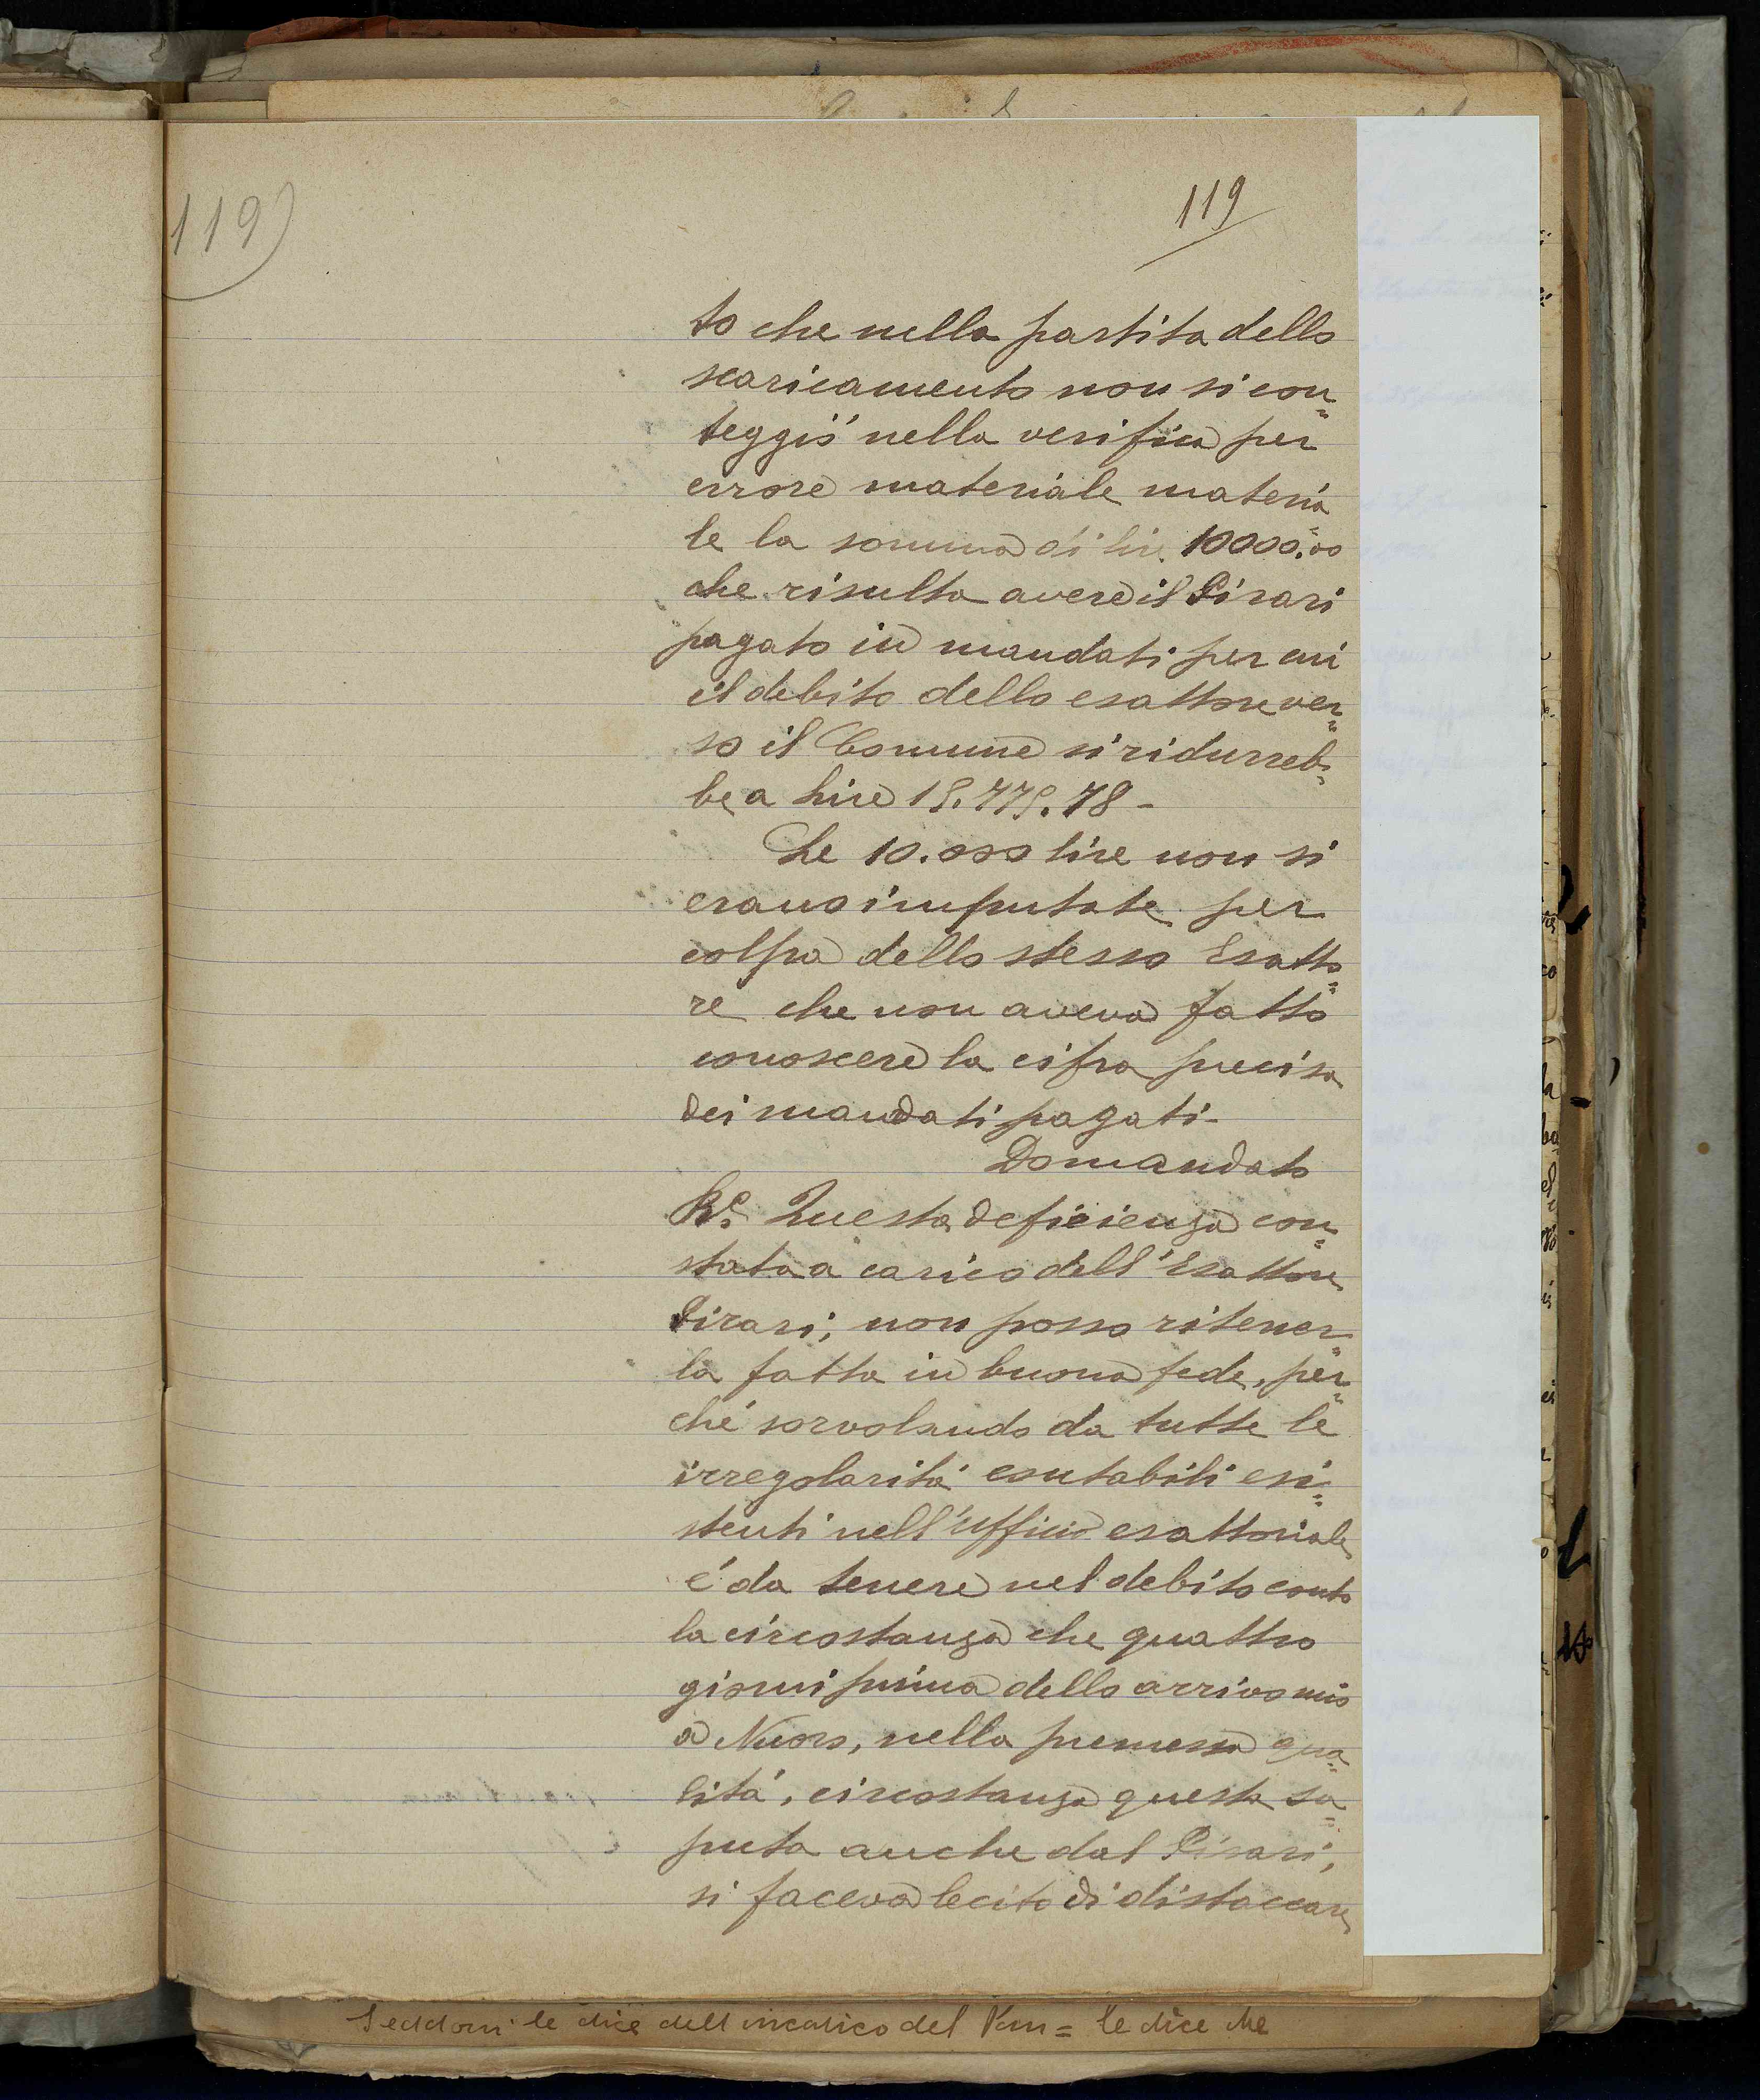 119)
119
to che nella partita dello
scaricamento non si con=
teggió nella verifica per
errore materiale materia
le la somma di lir. 10000.00
che risulta avere il Pirari
pagato in mandati per cui
il debito dello esattore ver=
so il Comune si ridurreb=
be a Lire 19.779.78 -
Le 10.000 lire non si
erano imputate per
colpa dello stesso Esatto=
re che non aveva fatto
conoscere la cifra precisa
dei mandati pagati -
Domandato
Rᵉ. Questa deficienza con=
stata a carico dell'Esattore
Pirari; non posso ritener=
la fatta in buona fede, per=
ché sorvolando da tutte le
irregolaritá contabili esi=
stenti nell'ufficio esattoriale
é da tenere nel debito conto
la circostanza che quattro
giorni prima dello arrivo mio
a Nuoro, nella premessa qua=
litá, circostanza questa sa=
puta anche dal Pirari,
si faceva lecito di distaccare
le dice dell'incarico del = le dice che